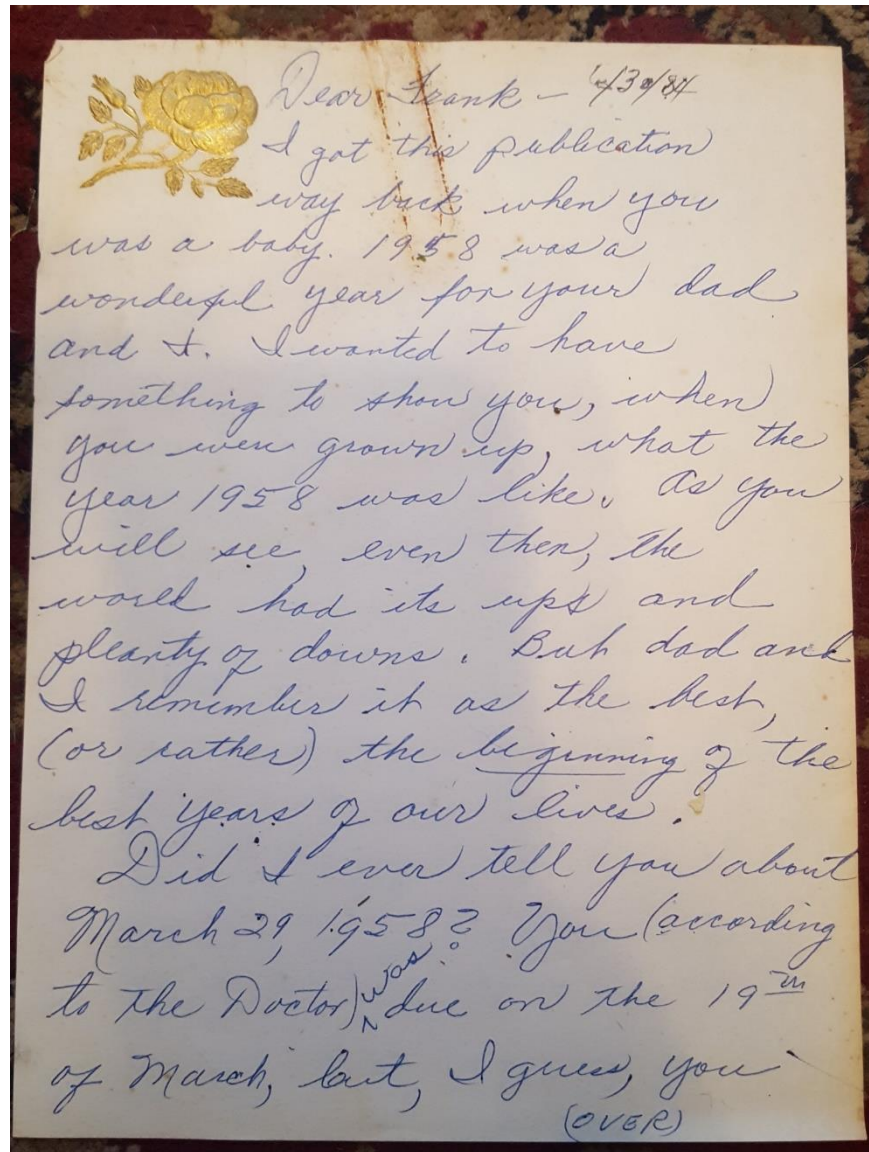 Dear Frank – 4/30/84
I got this publication
way back when you
was a baby. 1958 was a
wonderful year for your dad
and I. I wanted to have
something to show you, when
you were grown up, what the
year 1958 was like. As you
will see, even then, the
world had its ups and
pleanty of downs. But dad and
I remember it as the best,
(or rather) the beginning of the
best years of our lives.
Did I ever tell you about
March 29, 1958? You (according
to the Doctor) was due on the 19th
of March, but, I guess, you
(OVER)